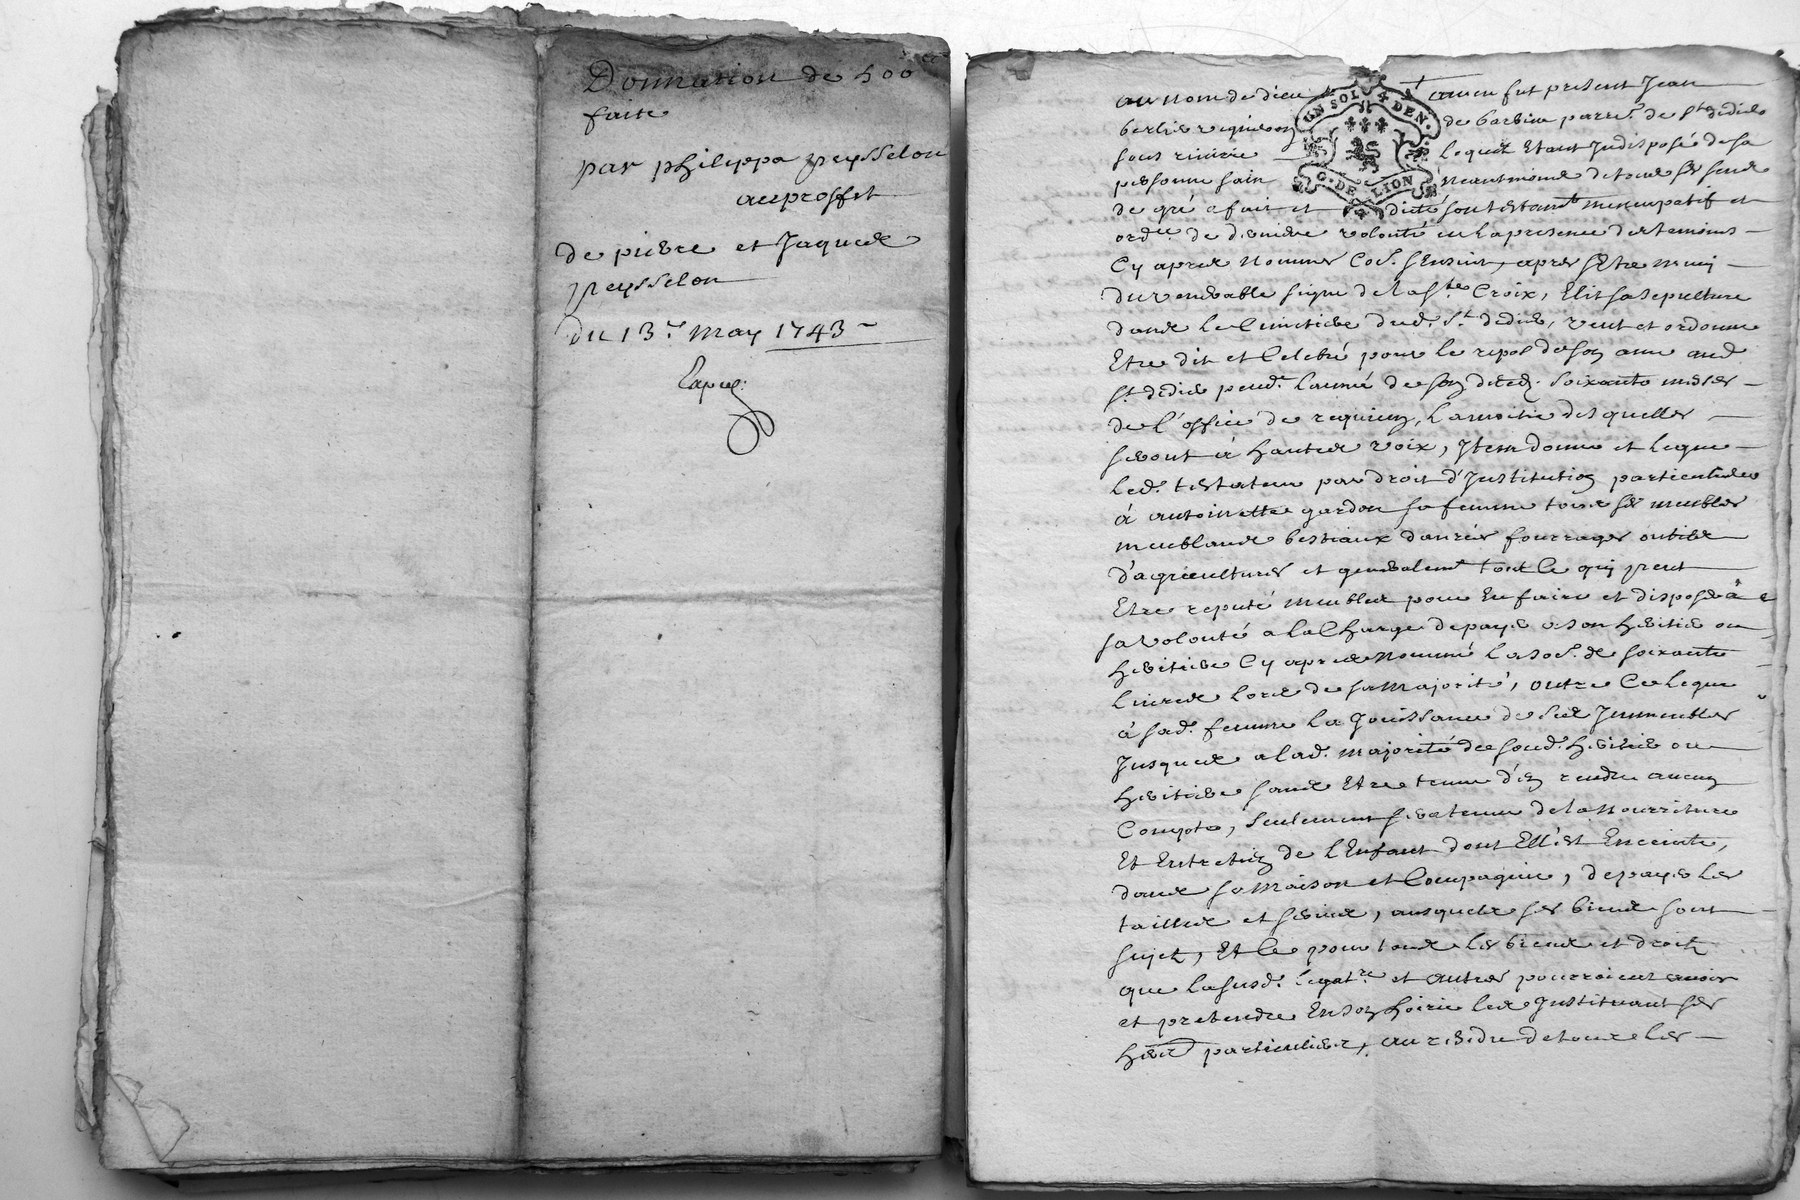 Donnation de 500
faite
par philippa peysselon
auproffit
de pierre et Jaques
peysselon
du 13e. may 1743
UN SOL 4 DEN.
G. DE LION
au nom de dieu amen fut present Jean
de barbin parr.e de st didier
sous riviere lequel Etant Indisposé de sa
personne sain neantmoins de tous ses sens
de gré a fait et dicté son testamt. nuncupatif et
ordce. de derniere volonté en la presence des temoins
Cy apres nommes Co.e sensuit, apres sEtre muni
du venerable signe de la ste. Croix, Elit sa sepulture
dans le Cimitiere dud. st. didier, veut et ordonne
Etre dit et Celebré pour le repos de son ame aud
st. didier pendt. lannée de son deced. soixante messes
de l'office de requiem, la moitie des quelles
seront à hautes voix, Item donne et legue
led. testateur par droit d'Institution particuliere
à antoinette gardon sa femme tous ses meubles
meublans bestiaux danrées fourrages outils
d'agricultures et generalemt tout Ce qui peut
Etre reputé meubles pour En faire et disposer à
sa volonté a la Charge de payer a son heritier ou
heritiere Cy apres nommé la so.e de soixante
livres lors de sa majorité, outre Ce legue
à sad. femme la Jouissance de ses Immeubles
Jusques a lad. majorité de sond. heritier ou
heritiere sans Etre tenue d'en rendre aucun
Compte, seulement sera tenue de la nourriture
Et Entretien de l'Enfant dont Ell'est Enceinte,
dans sa maison et Compagnie, de payer les
tailles et servis, ausquels ses biens sont
sujets, Et Ce pour tous les biens et droits
que la susd. legatre et autres pourroient avoir
et pretendre En son hoirie les Instituant ses
hers particuliers, au residu de tous les